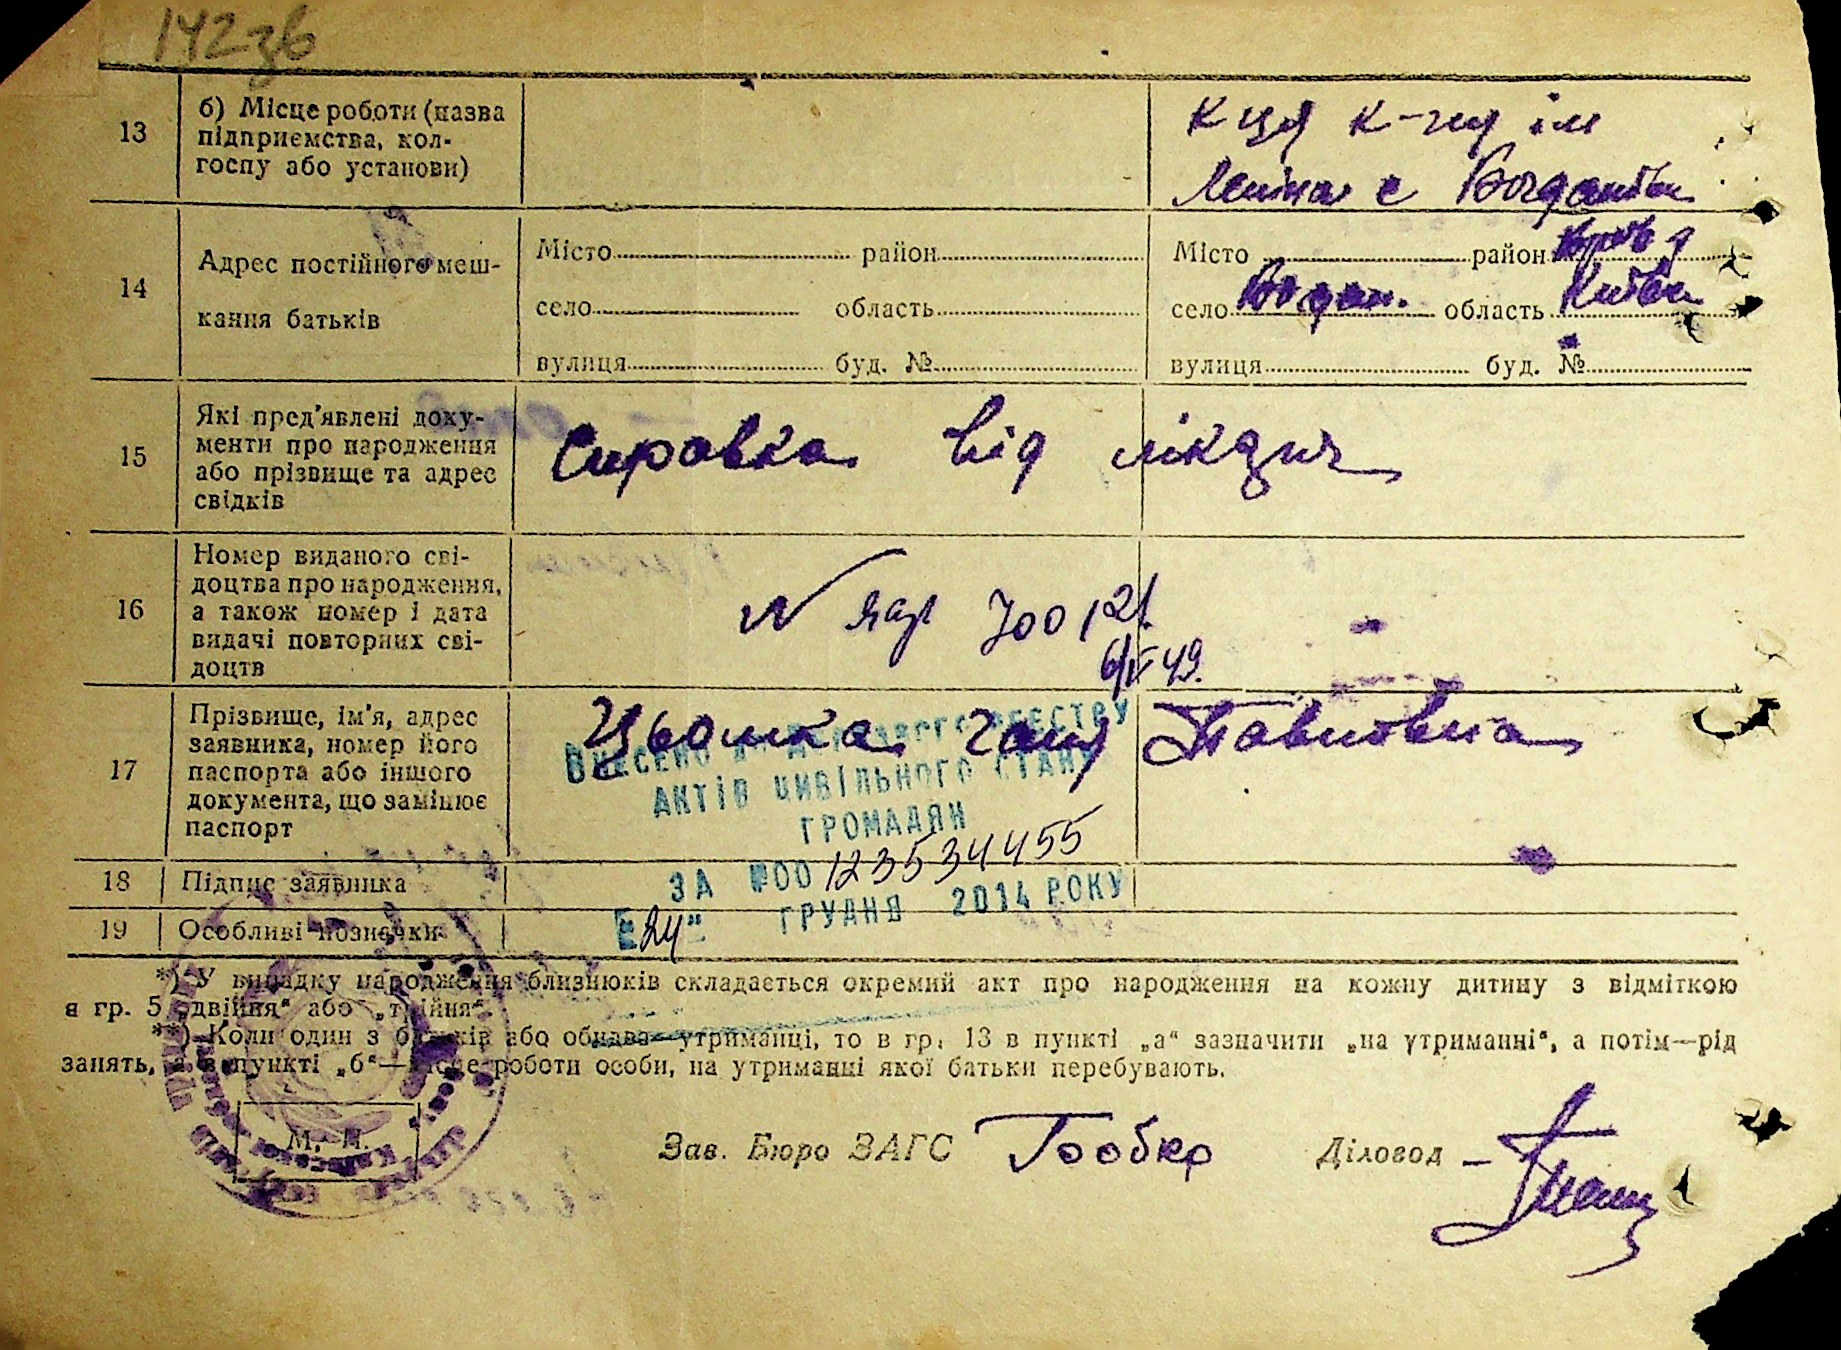 142зв
13 б) Місце роботи (назва
підприємства, кол-
госпу або установи)
к-ця к-гпу ім
Леніна с Богданівки
14 Адрес постійного меш-
кання батьків
Місто район Місто район
село область село Богдан. область Київськ
вулиця буд. № вулиця буд. №
15 Які пред'явлені доку-
менти про народження
або прізвище та адрес
свідків
Справка від лікдич
16 Номер виданого сві-
доцтва про народження,
а також номер і дата
видачі повторних сві-
доцтв
N 700121
6/V 49.
17 Прізвище, ім'я, адрес
заявника, номер його
паспорта або іншого
документа, що замінює
паспорт
Цьомка Павловна
Внесено до Державного реєстру
актів цивільного стану
громадян
18 Підпис заявника
за №00123534455
19 Особливі позначки
"24" грудня 2014 року
*) У випадку народження близнюків складається окремий акт про народження на кожну дитину з відміткою
в гр. 5 „двійня" або „трійня".
**) Коли один з батьків або обидва—утриманці, то в гр. 13 в пункті „а" зазначити „на утриманні", а потім—рід
занять, а в пункті „б"—місце роботи особи, на утриманні якої батьки перебувають.
М. П.
Зав. Бюро ЗАГС Бобко Діловод